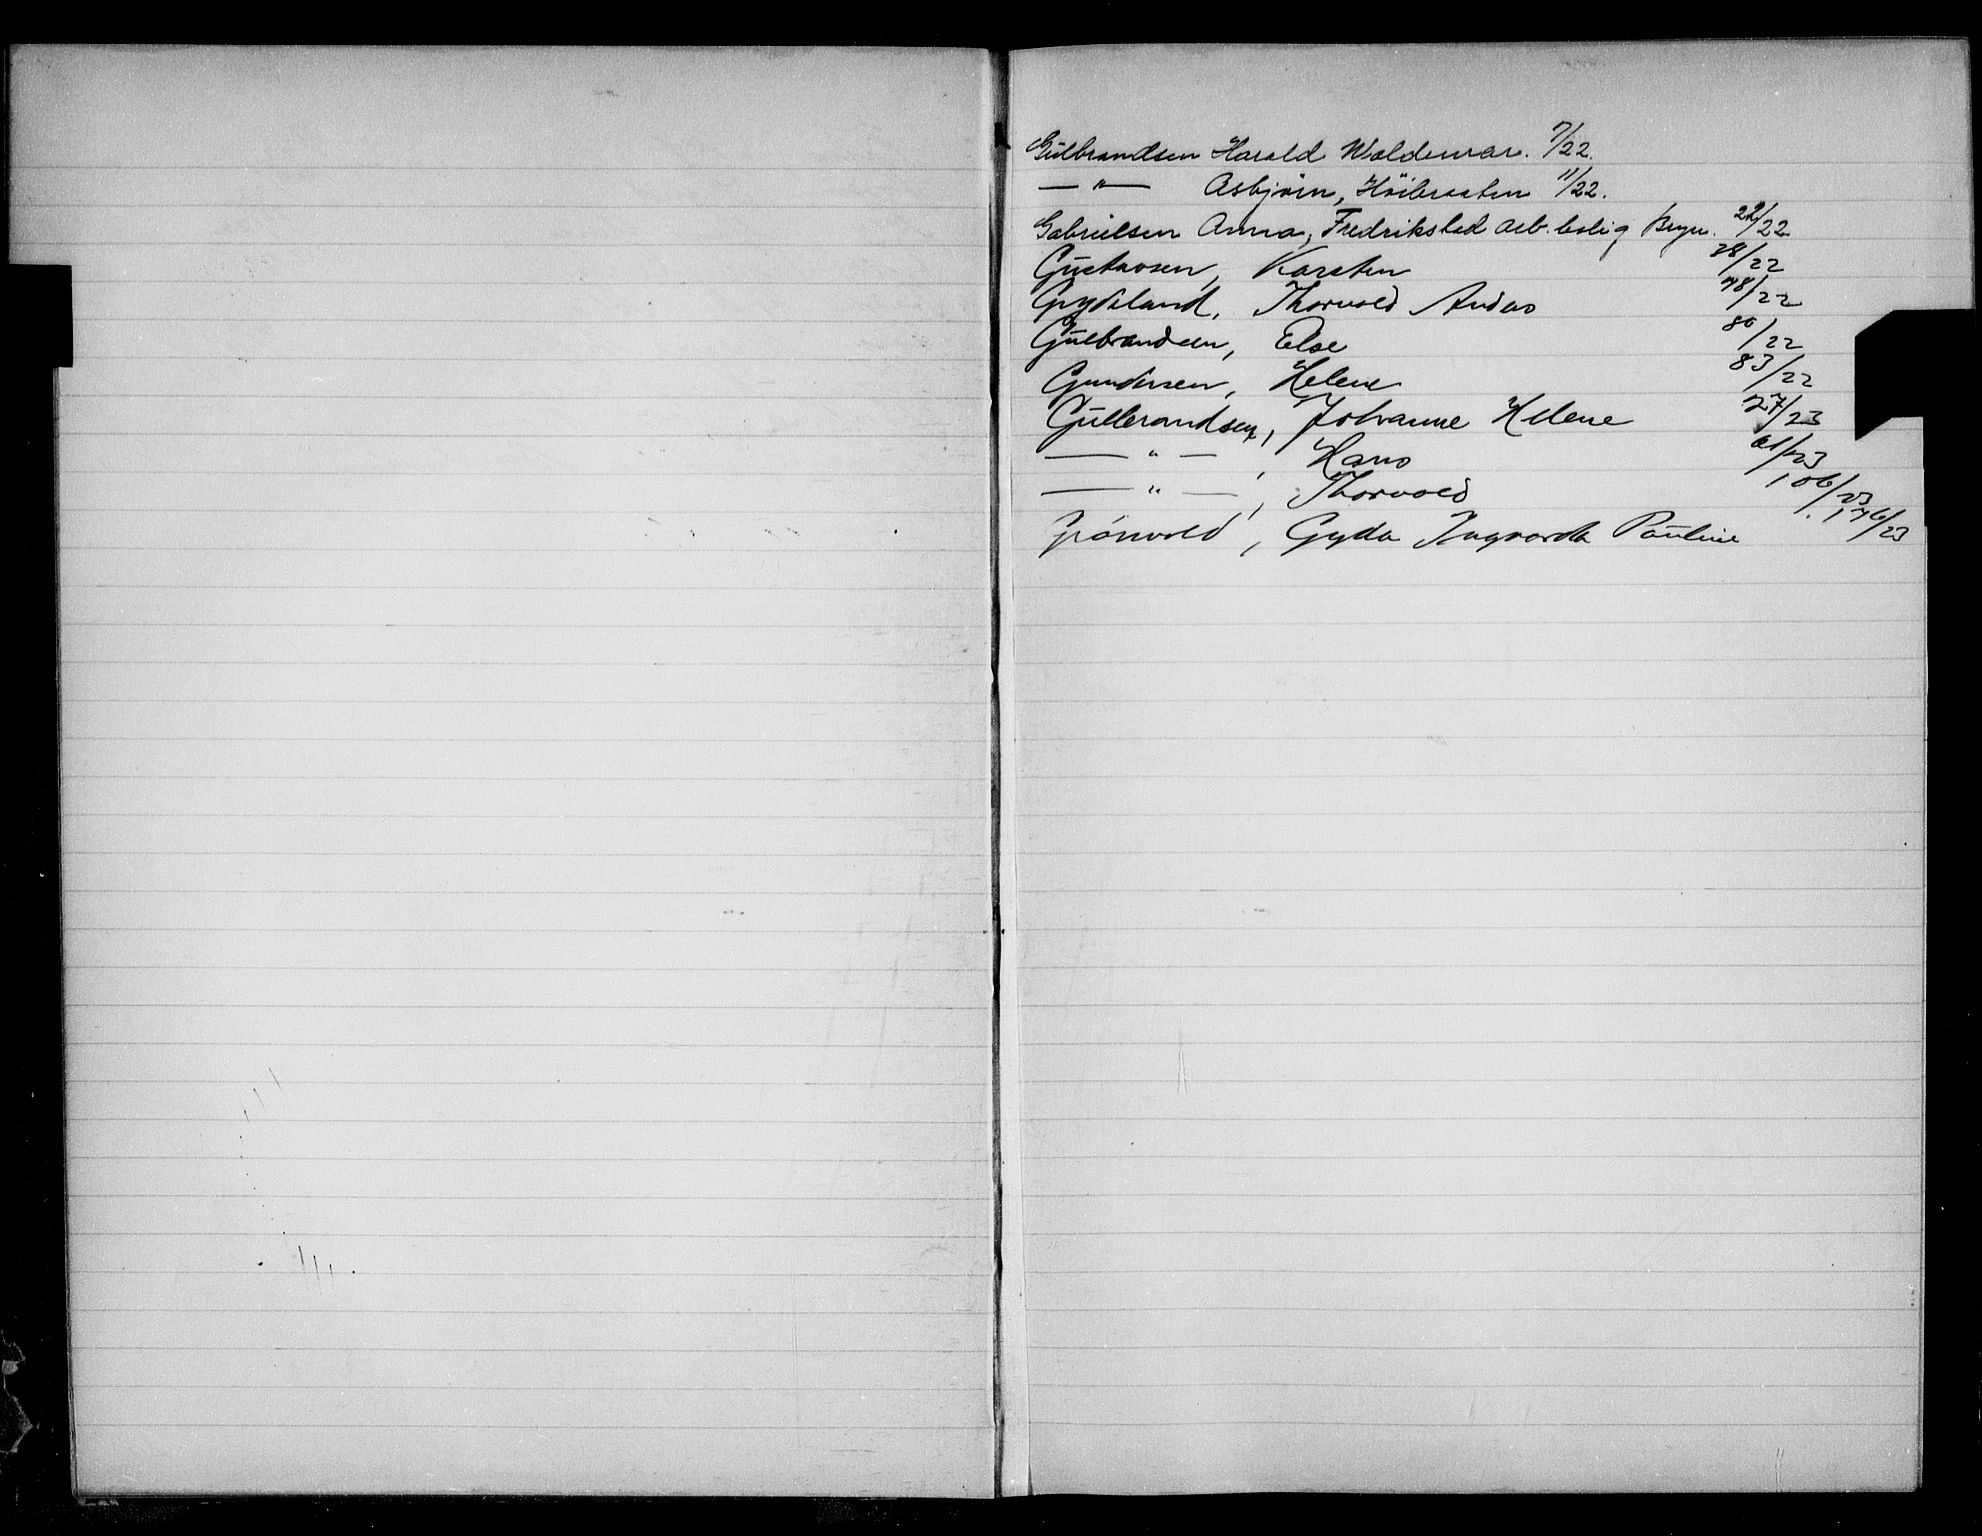 Gulbrandsen Harald Waldemar. 7/22.
—"— Asbjörn, Höibraaten 11/22.
Gabrielsen Anna, Fredrikstad arb. bolig Bryn. 22/22
Gustavsen, Karsten 38/22
Grydeland, Thorvald Andas 48/22
Gulbrandsen, Else 80/22
Gundersen, Helene 83/22
Gulbrandsen, Johanne Helene 27/23
—"—, Hans 61/23
—"—, Thorvald 106/23
Grönvold, Gyda Ingvarda Pauline 176/23